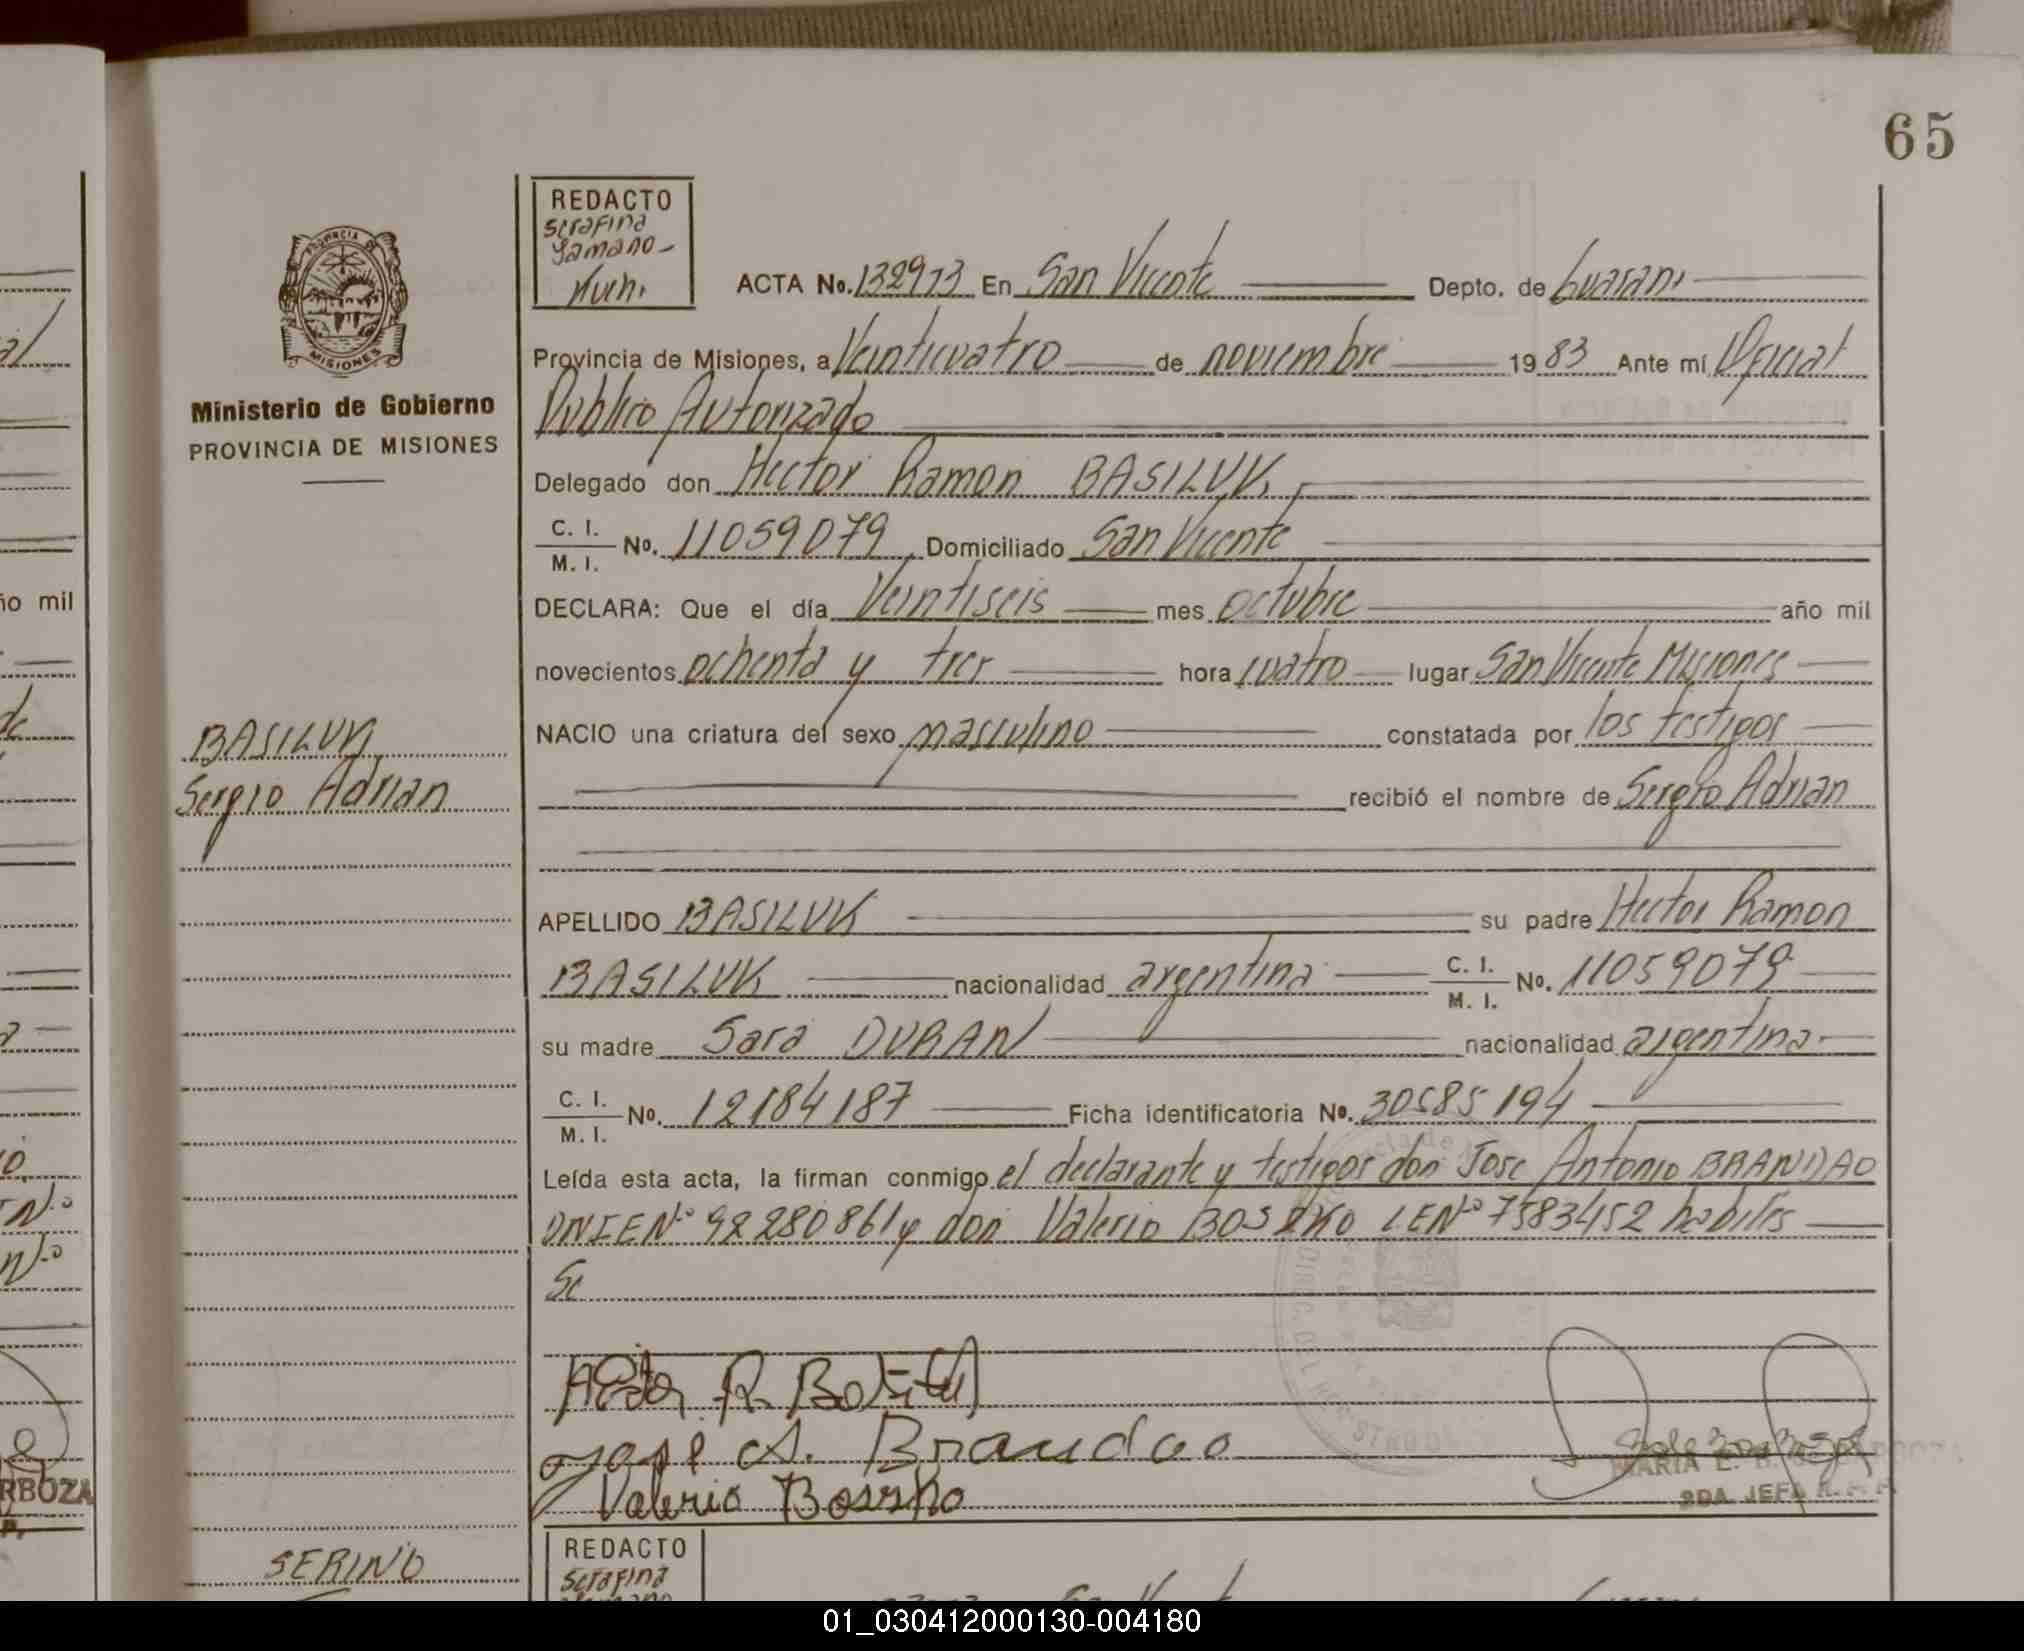 65
REDACTO
Serafina
Gamano -
ACTA No. 132973 En San Vicente Depto. de Guarani
Provincia de Misiones, a Veinticuatro de noviembre 1983 Ante mí Oficial
Publico Autorizado
Delegado don Hector Ramon BASILUK
C. I.
M. I. No. 11059079 Domiciliado San Vicente
DECLARA: Que el día Veintiseis mes octubre año mil
novecientos ochenta y tres hora cuatro lugar San Vicente Misiones
NACIO una criatura del sexo masculino constatada por los testigos
recibió el nombre de Sergio Adrian
APELLIDO BASILUK su padre Hector Ramon
BASILUK nacionalidad argentina C. I. M. I. No. 11059079
su madre Sara DURAN nacionalidad argentina
C. I.
M. I. No. 12184187 Ficha identificatoria No. 30585194
Leída esta acta, la firman conmigo el declarante y testigos don Jose Antonio BRANDAO
DNIE Nº 92280861 y don Valerio LE Nº 7583452 habiles
José A. Brandao
Valerio
MARIA E. B.
2DA. JEFA
PROVINCIA DE
MISIONES
Ministerio de Gobierno
PROVINCIA DE MISIONES
BASILUK
Sergio Adrian
SERINO
REDACTO
Serafina
ño mil
RBOZA
01_030412000130-004180